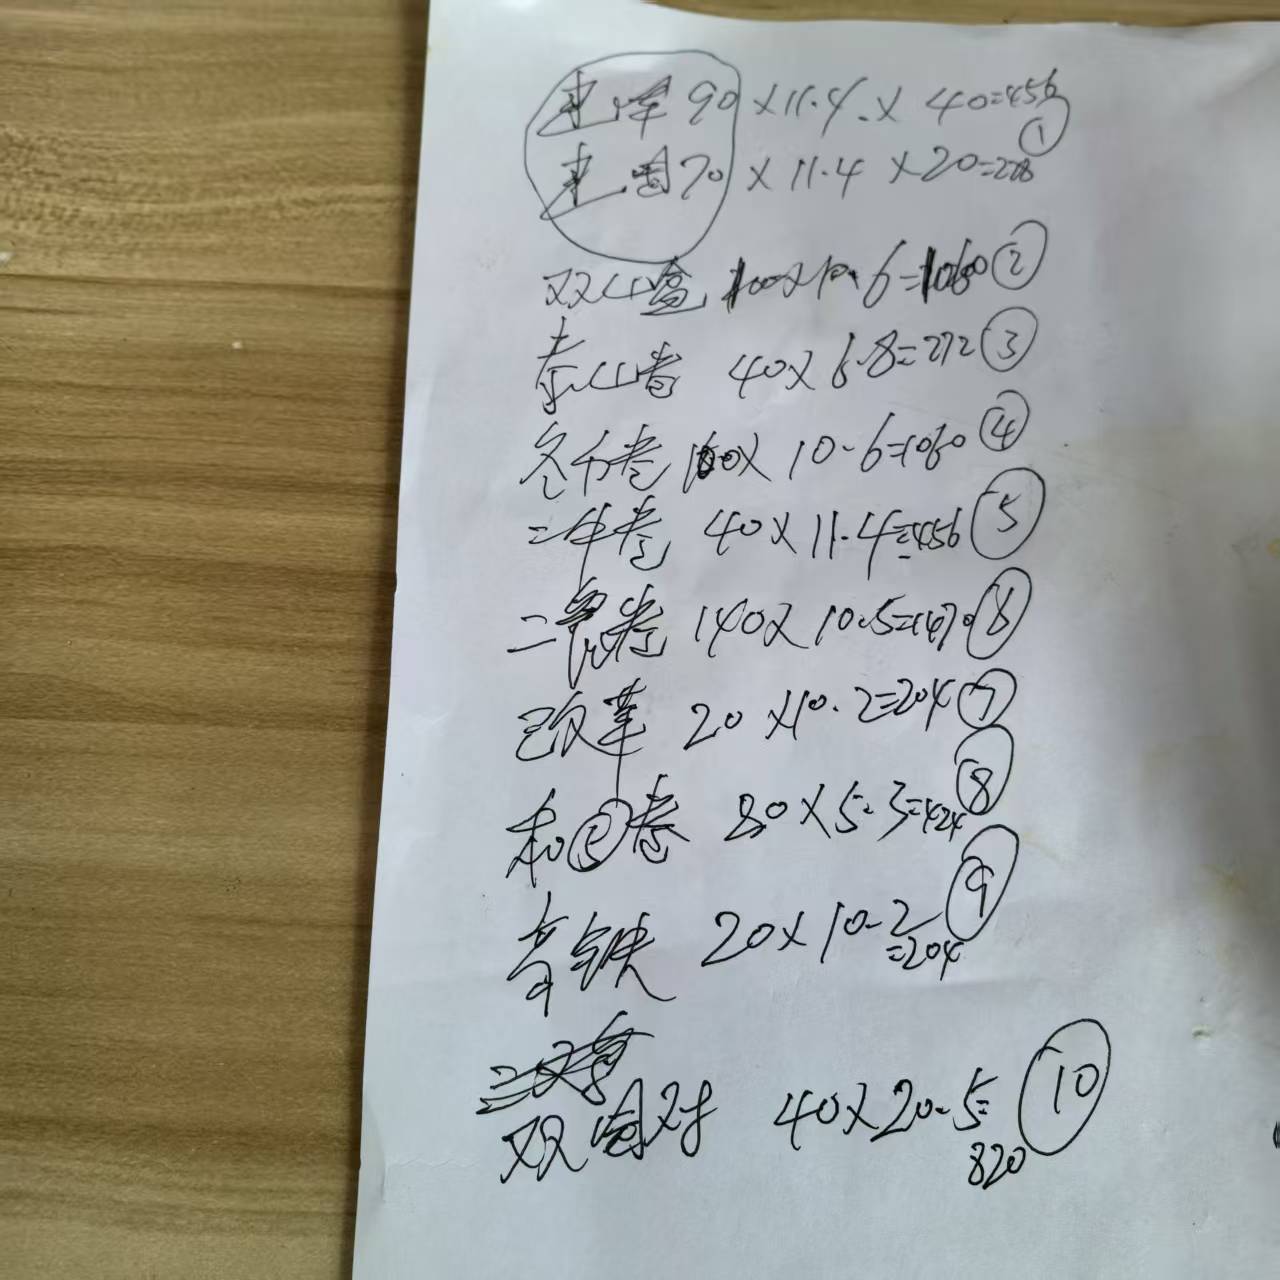 90 × 11.4 × 40=456
① 70 × 11.4 × 20=228
双山盒 100×10.6=1060 ②
泰山卷 40×6.8=272 ③
冬币卷 100× 10.6=1060 ④
二牛卷 40×11.4=456 ⑤
二宪卷 140×10.5=1470 ⑧
改革 20×10.2=204 ⑦
和⑤卷 80×5.3=424 ⑧
高铁 20×10.2=204 ⑨
双国对 40×20.5=820 ⑩